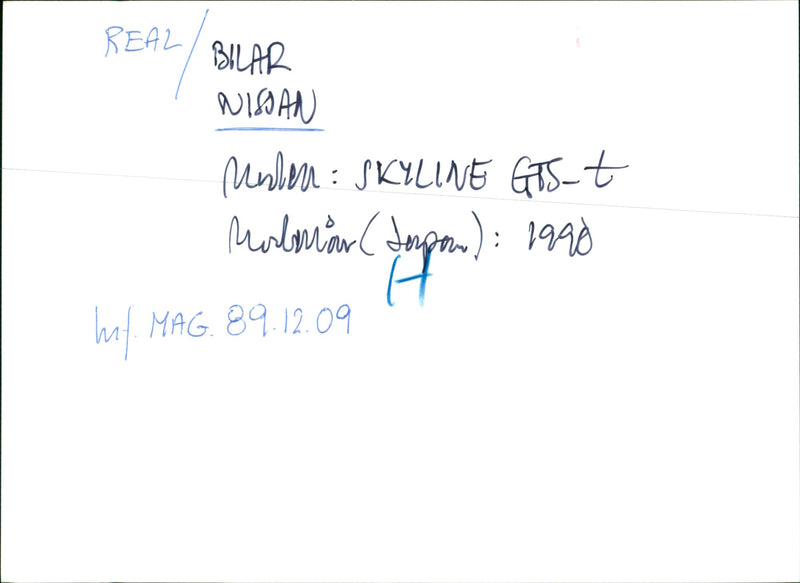 REAL/
BILAR
NISSAN
Modell: SKYLINE GTS-t
Modellår (Japan): 1990
H
Inf. MAG. 89.12.09